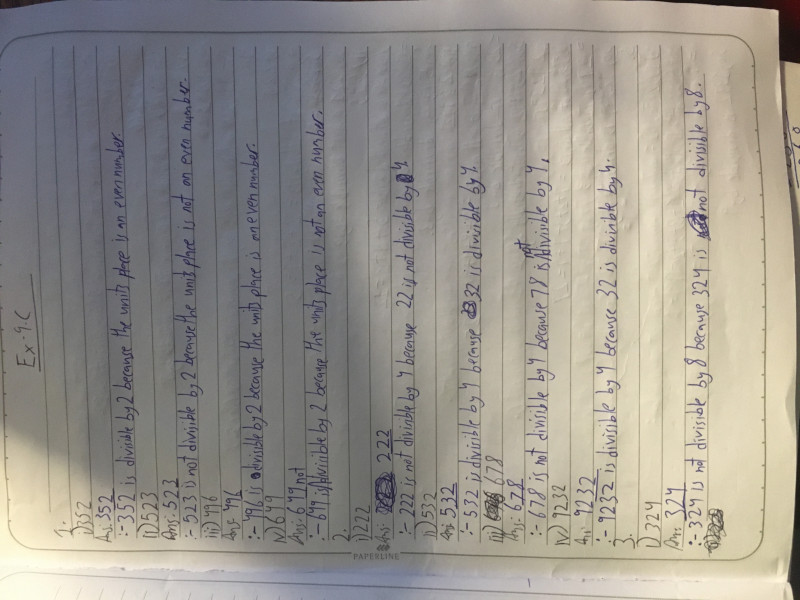 Ex-9.C
1.
i) 352
Ans: 352
:- 352 is divisible by 2 because the units place is an even number.
ii) 523
Ans: 523
:- 523 is not divisible by 2 because the units place is not an even number.
iii) 496
Ans: 496
:- 496 is divisible by 2 because the units place is an even number.
iv) 649
Ans: 649
:- 649 is not divisible by 2 because the units place is not an even number.
2.
i) 222
Ans: 222
:- 222 is not divisible by 4 because 22 is not divisible by 4.
ii) 532
Ans: 532
:- 532 is divisible by 4 because 32 is divisible by 4.
iii) 678
Ans: 678
:- 678 is not divisible by 4 because 78 is not divisible by 4.
iv) 9232
Ans: 9232
:- 9232 is divisible by 4 because 32 is divisible by 4.
3.
i) 324
Ans: 324
:- 324 is not divisible by 8 because 324 is not divisible by 8.
PAPERLINE